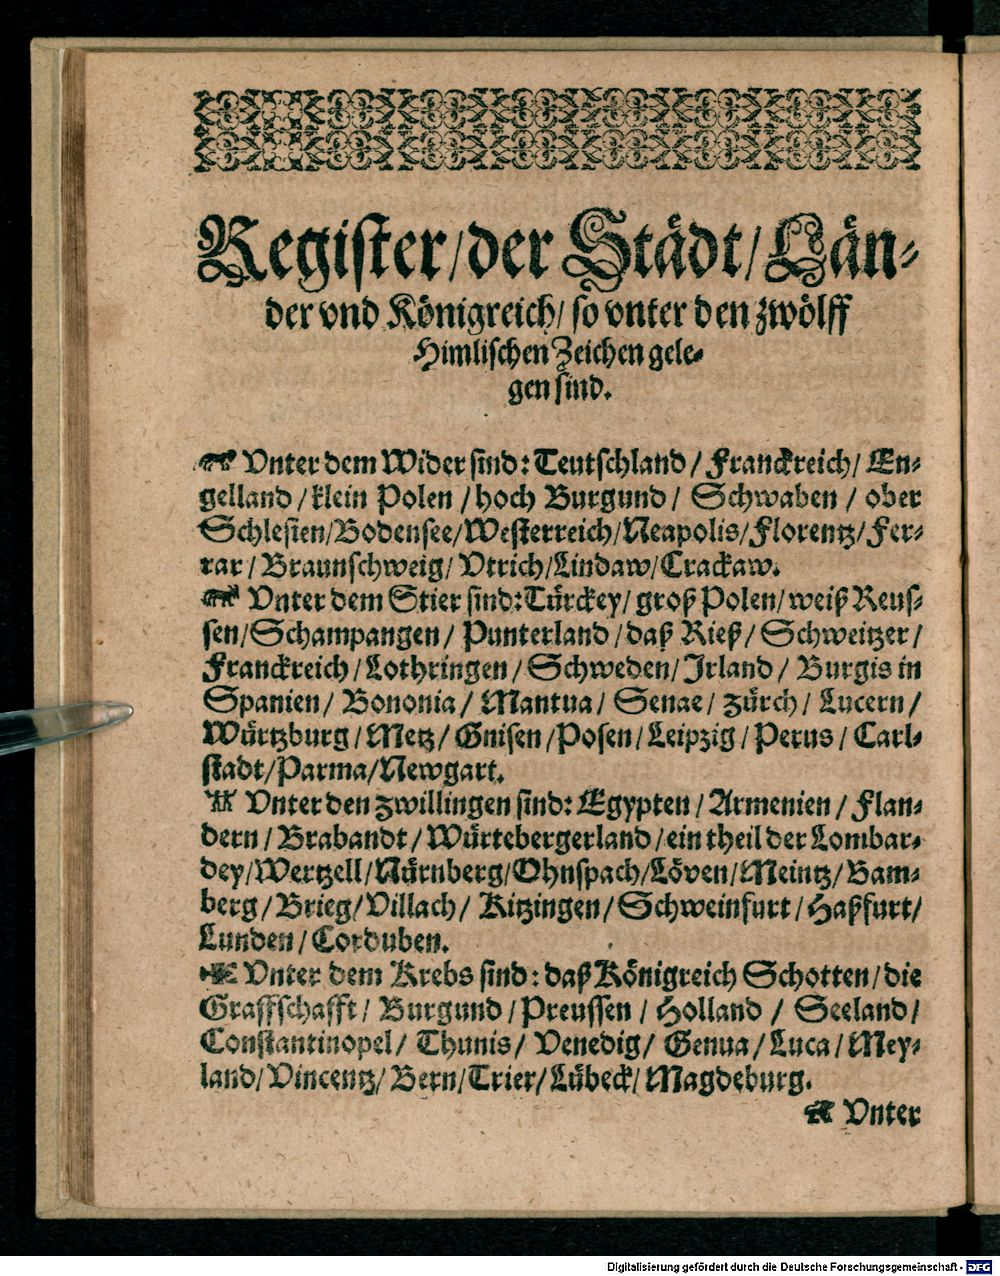 Register/der Städt/Län-
der vnd Königreich/ so vnter den zwölff
Himlischen Zeichen gele-
gen sind.
♈ Vnter dem Wider sind: Teutschland/ Franckreich/ En-
gelland/ klein Polen/ hoch Burgund/ Schwaben/ ober
Schlesien/Bodensee/Westerreich/Neapolis/Florentz/Fer-
rar/ Braunschweig/ Vtrich/Lindaw/Crackaw.
♉ Vnter dem Stier sind:Türckey/ groß Polen/weiß Reus-
sen/Schampangen/ Punterland/daß Rieß/ Schweitzer/
Franckreich/Lothringen/Schweden/Irland/ Burgis in
Spanien/ Bononia/ Mantua/ Senae/ Zürch/ Lucern/
Würtzburg/ Metz/ Gnisen/Posen/Leipzig/ Perus/ Carl-
stadt/Parma/Newgart.
♊ Vnter den Zwillingen sind: Egypten/ Armenien/ Flan-
dern/ Brabandt/ Würtebergerland/ein theil der Lombar-
dey/Wertzell/Nürnberg/Ohnspach/Löven/Meintz/ Bam-
berg/ Brieg/Villach/ Kitzingen/Schweinfurt/Haßfurt/
Lunden/ Corduben.
♋ Vnter dem Krebs sind: daß Königreich Schotten/die
Graffschafft/ Burgund/Preussen/ Holland/ Seeland/
Constantinopel/ Thunis/ Venedig/ Genua/Luca/ Mey-
land/Vincentz/ Bern/Trier/Lübeck/Magdeburg.
♌ Vnter
Digitalisierung gefördert durch die Deutsche Forschungsgemeinschaft - DFG